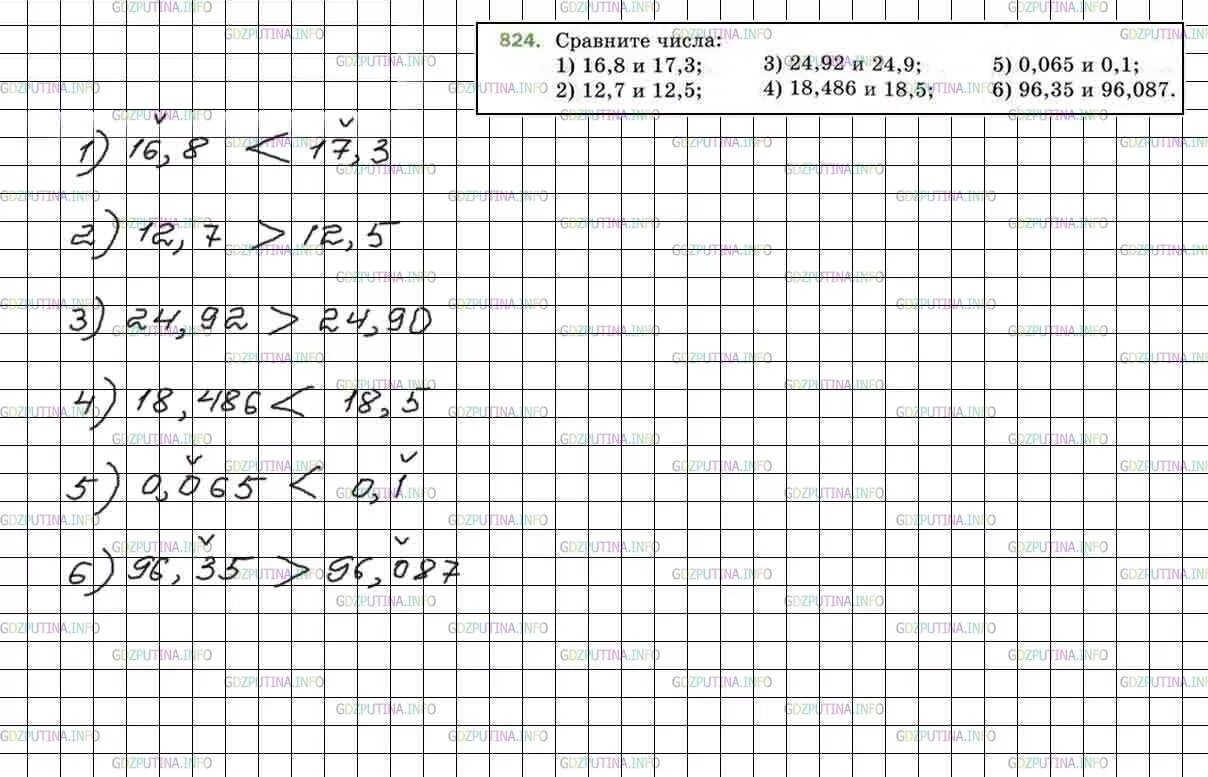 824. Сравните числа:
1) 16,8 и 17,3; 3) 24,92 и 24,9; 5) 0,065 и 0,1;
2) 12,7 и 12,5; 4) 18,486 и 18,5; 6) 96,35 и 96,087.
1) 16,8 < 17,3
2) 12,7 > 12,5
3) 24,92 > 24,90
4) 18,486 < 18,5
5) 0,065 < 0,1
6) 96,35 > 96,087
GDZPUTINA.INFO